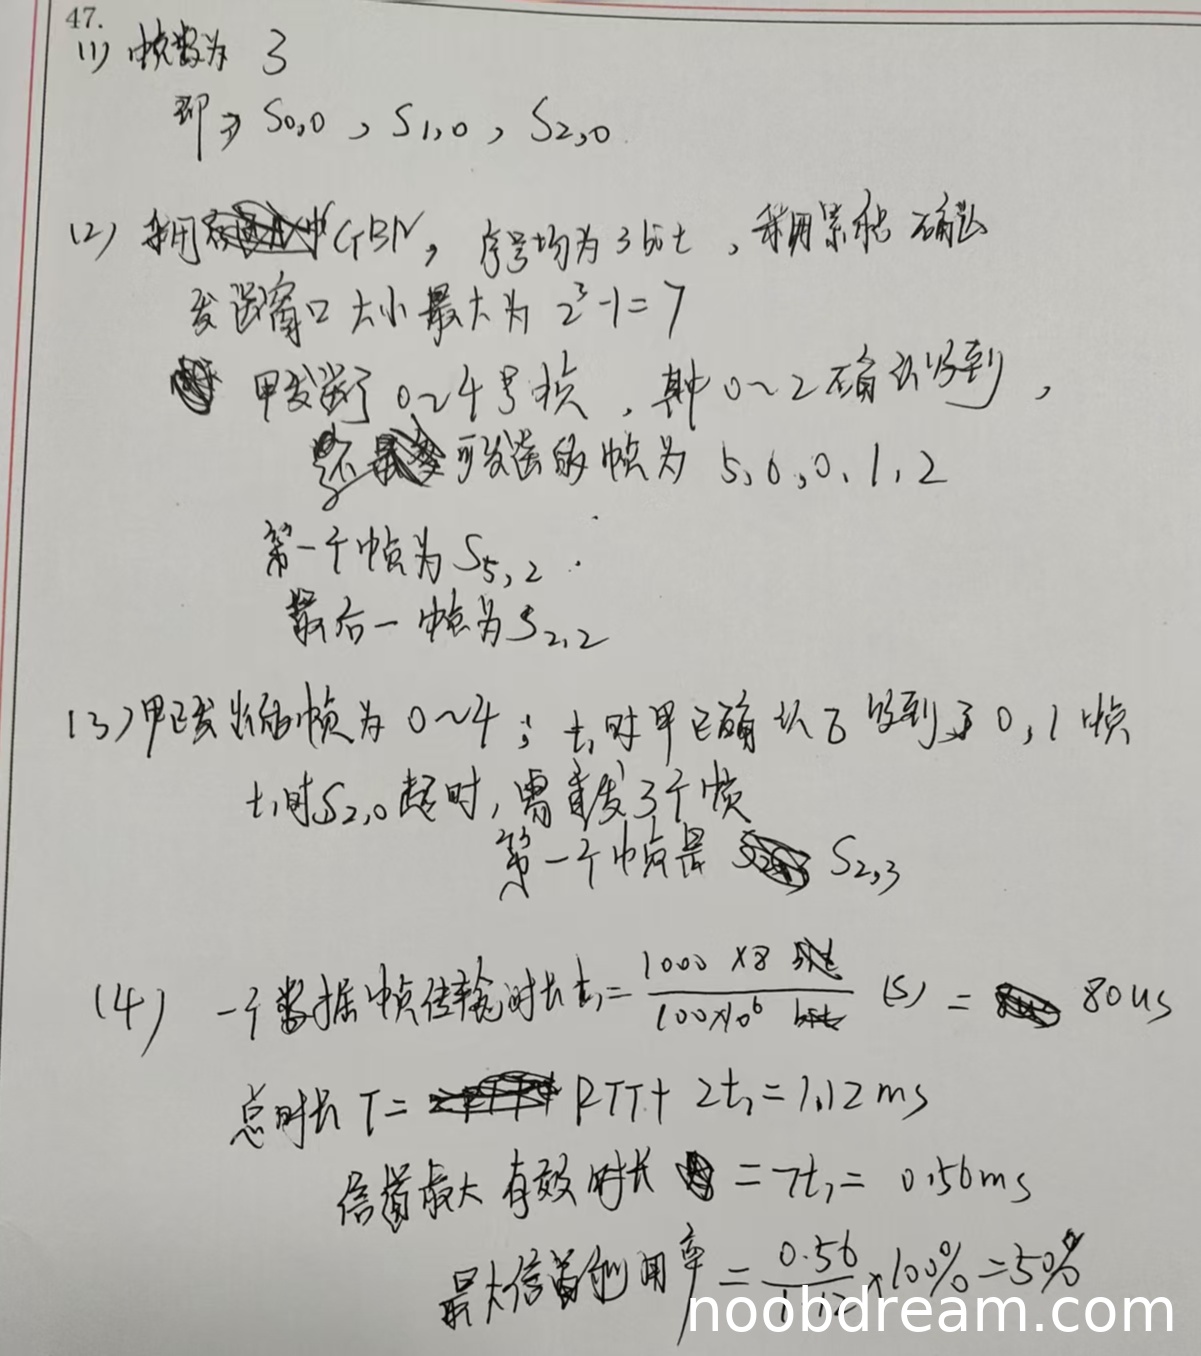 47.
(1) 帧数为 3
即为 S0,0 , S1,0 , S2,0.
(2) 采用GBN, 序号均为3bit, 采用累积确认
发送窗口大小最大为 2³-1=7
甲发送了 0~4号帧, 其中0~2确认收到,
还可发送的帧为 5,6,0,1,2
第一个帧为 S5,2.
最后一帧为 S2,2
(3) 甲已发出的帧为 0~4; t₁时甲已确认乙收到了 0,1帧
t₁时S2,0超时, 需重发3个帧
第一个帧是 S2,3
(4) 一个数据帧传输时长t₁= 1000×8 bit / 100×10⁶ bit (s) = 80us
总时长 T= RTT+ 2t₁=1.12ms
信道最大有效时长 =7t₁= 0.56ms
最大信道利用率 = 0.56/1.12 ×100%=50%
noobdream.com